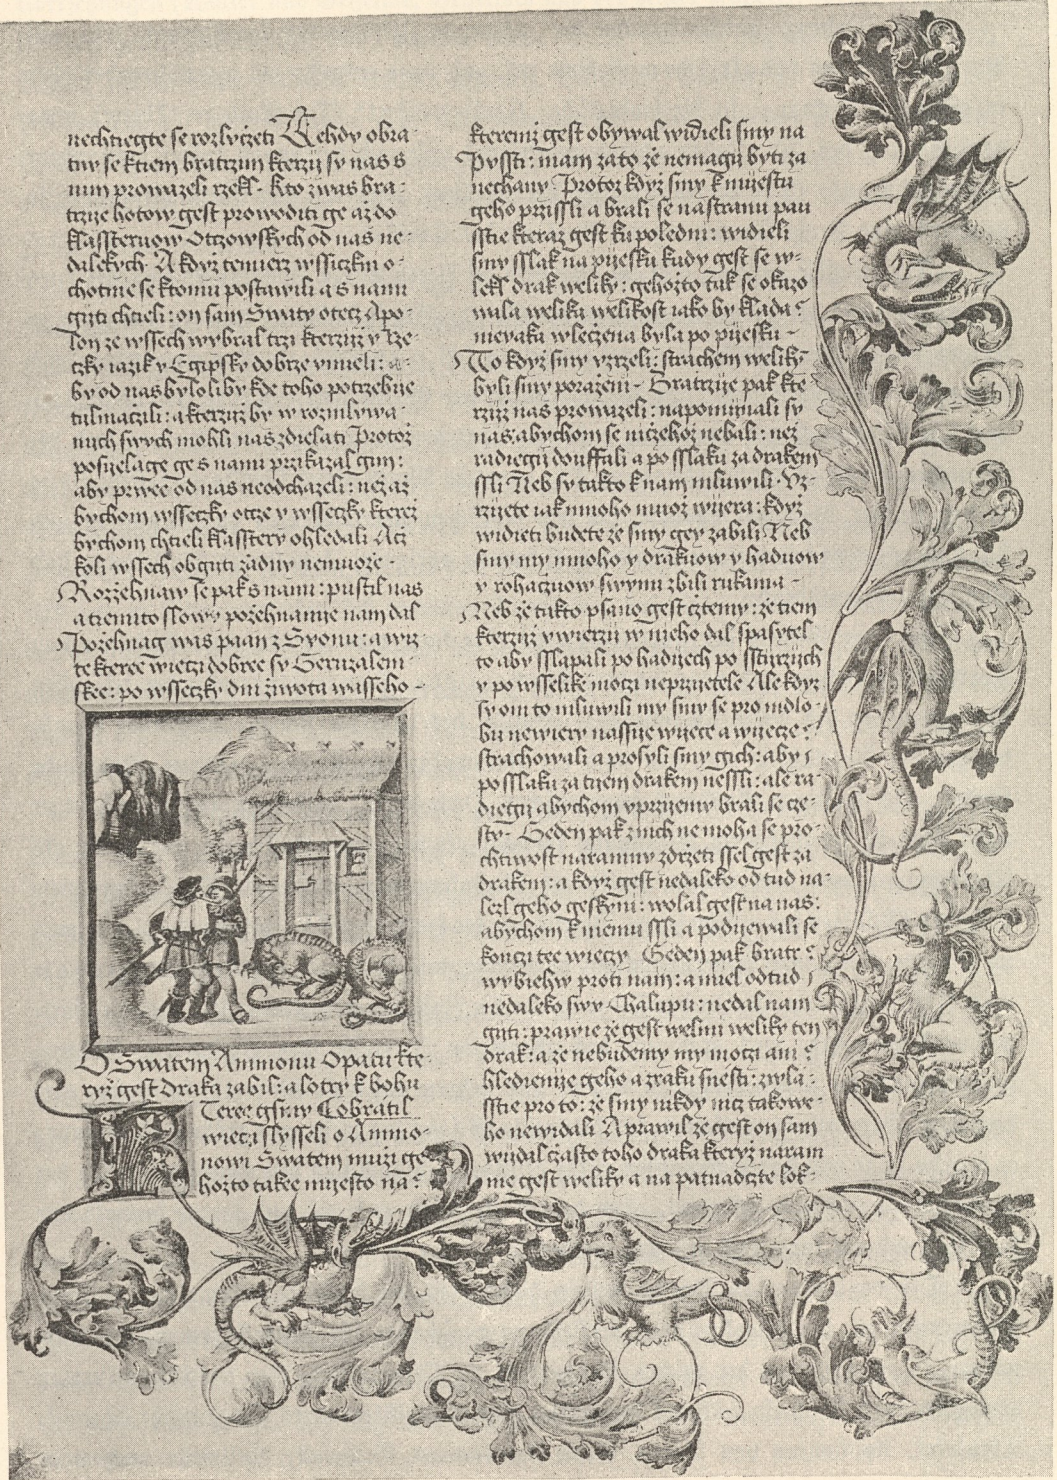 nechtiegte se rozlyčzeti Tehdy obra-
tiw se ktiem bratrzim kterziz sy nas s
nim prowazeli rzekl· kto zwas bra-
trzije hotow gest prowoditi ge aždo
klassteruow Otczowskych od nas ne-
dalekych· A když temierz wssiczkni o-
chotnie se ktomu postawili a s nami
gijti chtieli: on sam Swaty otecz Apo-
lon ze wssech wybral trzi kterziz y rze-
czky iazik y Egipsky dobrze vmieli: a-
by od nas byloliby kde toho potrzebije
tulmaczili: a kterziz by w rozmlywa-
nijch swych mohli nas zdielati Protož
posijelage ge s nami przikazal gim:
aby prwee od nas neodchazeli: než až
bychom wssiczky otcze y wssiczky kterez
bychom chtieli klasstery ohledali Acž
koli wssech obgijti žadny nemuože·
Rozžehnaw se pak s nami: pustil nas
a tiemito slowy požehnanie nam dal
Požehnag was paan z Syonu: a wiz-
te kteree wieczi dobree sy Geruzalem-
skee: po wsseczky dni žiwota wasseho·
O Swatem Ammonu Opatu kte-
ryž gest draka zabil: a lotry k bohu
obratil
wieczi slysseli o Ammo-
nowi Swatem muži ge-
hožto takee mijesto na
kteremž gest obywal widieli smy na
Pussti: mam zato že nemagij byti za-
nechany· Protož když smy k mijestu
geho przissli a brali se na stranu pau-
sstie kteraž gest ku poledni: widieli
smy sslak na pijesku kudy gest se w-
lekl drak weliky: gehožto tak se okazo-
wala welika welikost iako by klada
nieyaka wleczena byla po pijesku·
To když smy vzrzeli: strachem welikym
byli smy poraženi· Bratrzije pak kte-
rziz nas prowazeli: napomijnali sy
nas abychom se niczehož nebali: než
radiegij douffali a po sslaku za drakem
ssli Neb sy takto k nam mluwili· Vz-
rzijete iak mnoho muož wijera: když
widieti budete že smy gey zabili Neb
smy my mnoho y drakuow y haduow
y rohaczuow swymi zbili rukama·
Neb že takto psano gest cztemy: že tiem
kterziz y wierzij w nieho dal spasytel
to aby sslapali po hadijech po sstirzijch
y po wsselike moczi neprzijetele Ale když
sy oni to mluwili my smy se pro mdlo-
bu newiery nassije wijece a wijecze
strachowali a prosyli smy gich: aby
po sslaku za tijem drakem nessli: ale ra-
diegij abychom vprzijemy brali se cze-
stu· Geden pak z nich nemoha se pro
chtiwost naramnu zdržeti ssel gest za
drakem: a když gest nedaleko od tud na-
lezl geho geskyni: wolal gest na nas:
abychom k niemu ssli a podijewali se
konczi tee wieczy· Geden pak bratr
wybiehw proti nam: a miel odtud
nedaleko swu Chalupu: nedal nam
gijti: prawie že gest welmi weliky ten
drak: a že nebudemy my moczi ani
hledienije geho a zraku snesti: zwla-
sstie pro to: že smy nikdy nicz takowe-
ho newidali A prawil že gest on sam
wijdal cžasto toho draka kteryž naram-
nie gest weliky a na patnadczte lok-